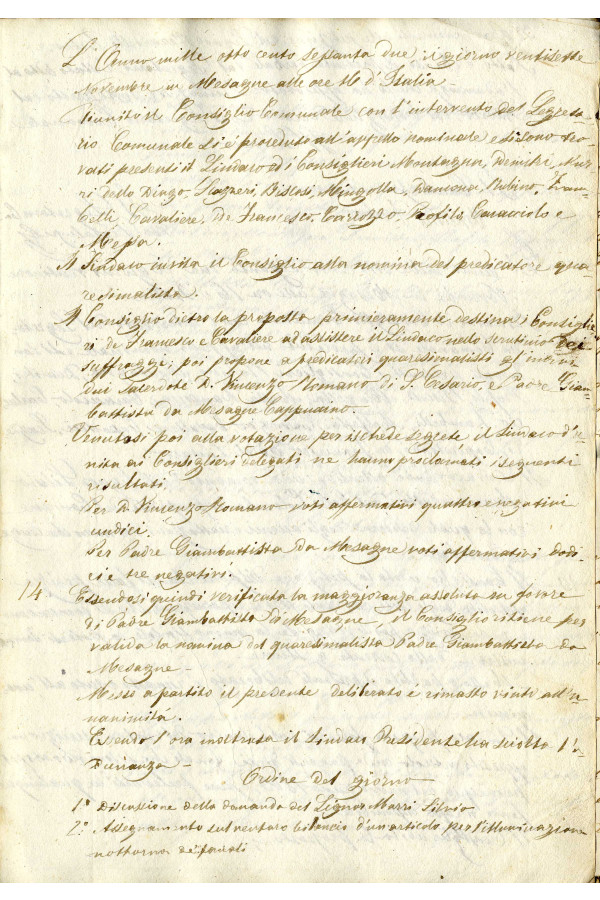 L'Anno mille otto cento septanta due, il giorno ventisette
Novembre in Mesagne alle ore 16 d'Italia -
Riunito il Consiglio Comunale con l'intervento del Segreta-
rio Comunale si è proceduto all'appello nominale e si sono tro-
vati presenti il Sindaco ed i Consiglieri Montagna, Demitri,
dello Diago, Scazzeri, Biscosi, Mingolla, Dancona, Rubino, Fran-
Celli, Cavaliere, De Francesco, Carrozzo, Profilo, Caracciolo e
Messa.
Il Sindaco invita il Consiglio alla nomina del predicatore qua-
resimalista.
Il Consiglio dietro la proposta primieramente destina i Consiglie
ri de Francesco e Cavaliere ad assistere il Sindaco nello scrutinio dei
suffraggi; poi propone a predicatori quaresimalisti gl'indivi
dui Sacerdote D. Vincenzo Romano di S. Cesario, e Padre Giam-
battista da Mesagne Cappuccino.
Venutasi poi alla votazione per ischede segrete il Sindaco u-
nita ai Consiglieri delegati ne hanno proclamati i seguenti
risultati.
Per D. Vincenzo Romano voti affermativi quattro e negativi
undici.
Per Padre Giambattista da Mesagne voti affermativi dodi-
ci e tre negativi.
14
Essendosi quindi verificata la maggioranza assoluta su favore
di Padre Giambattista da Mesagne, il Consiglio ritiene per
valida la nomina del quaresimalista Padre Giambattista da
Mesagne -
Messo a partito il presente deliberato è rimasto vinti ad u-
nanimità.
Essendo l'ora inoltrata il Sindaco Presidente ha sciolto l'a-
dunanza -
Ordine del giorno
1.° Discussione della domanda del Signor Marri Silvio
2.° Assegnamento sul venturo bilancio d'un articolo per l'illuminazione
notturna de' fanali